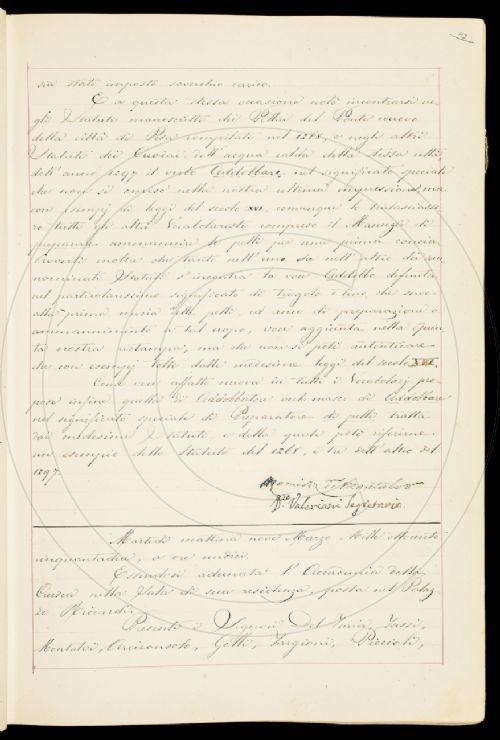 42
sia stato imposto soverchio carico.
E a questa stessa occasione notò incontrarsi ne-
gli Statuti manoscritti dei Pellai del Ponte nuovo
della città di Pisa compilati nel 1268, e negli altri
Statuti dei Cuoiai dell'acqua calda della stessa città
dell'anno 1297 il verbo Addobbare nel significato speciale
che non si espresse nella nostra ultima impressione, ma
con esempj di leggi del secolo XVI, comunque lo tralasciasse-
ro tutti gli altri Vocabolaristi compreso il Manuzzi di
preparare ammannire le pelli per una prima concia.
Avvertì inoltre che tanto nell'uno che nell'altro dei sun-
nominati Statuti s'incontra la voce Addobbo definita
nel particolarissimo significato di che serve
alla prima delle pelli, ed anco di preparazione e
ammannimento a tal uopo, voce aggiunta nella quin-
ta nostra ristampa, ma che non si potè autenticare
che con esempj tolti dalle medesime leggi del secolo XVI.
Come voce affatto nuova in tutti i Vocabolarj pro-
pose infine quella di Addobbatore verb. masc. di Addobbare
nel significato speciale di Preparatore di pelli, tratta
dai medesimi Statuti, e della quale potè riferirne
un esempio dello Statuto del 1268, e la dell'altro del
1297.
D. Valeriani Segretario.
Martedì mattina nove Marzo Mille ottocento
cinquantadue, a ore undici.
Essendosi adunata l'Accademia della
Crusca nella Sala di sua residenza, posta nel Palaz-
zo Riccardi,
Presenti i Signori Del Furia, Tassi,
Montalvi, Arcangeli, Gelli, Targioni, Piccioli,